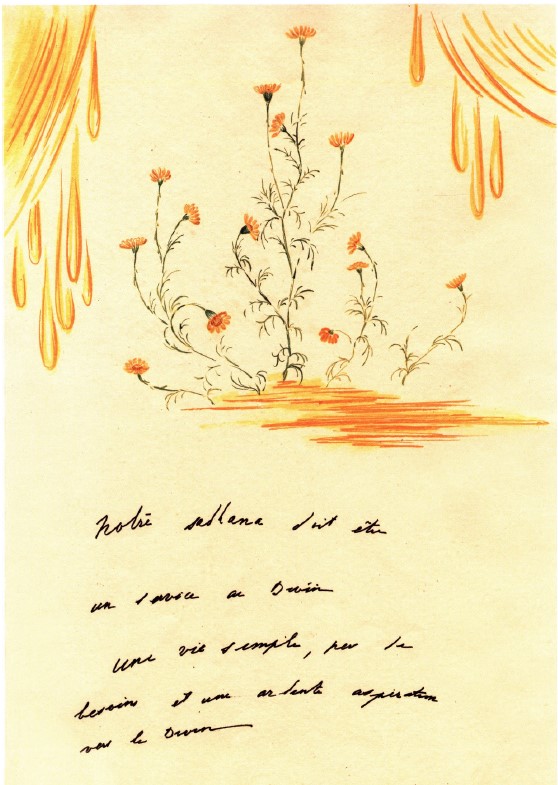 Notre sadhana doit être
un service au Divin
Une vie simple, peu de
besoins et une ardente aspiration
vers le Divin